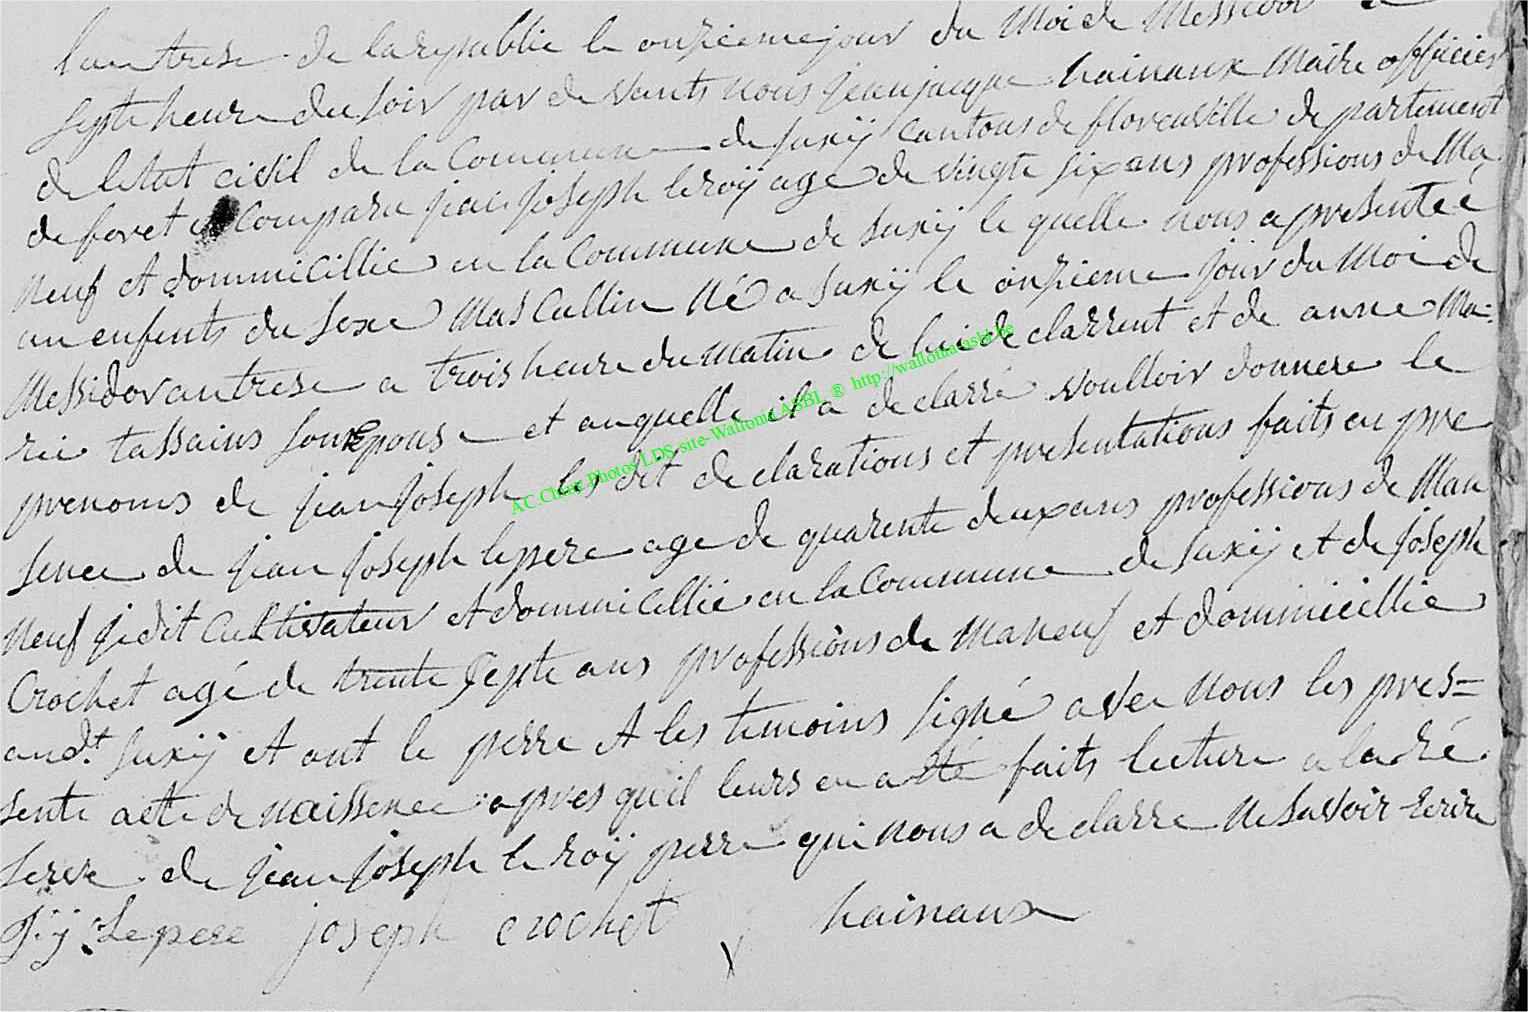 lan trese de la republic le onzieme jour du Moi de Messidor a
septe heure du soir par de vants nous jean jacque hainaux Maire officier
de letat civil de la Commune de suxÿ Cantons de florenville de partement
de foret Comparu jean joseph leroÿ age de vingte six ans professions de Ma
neuf et dommicillie en la Commune de suxÿ le quelle nous a presentée
un enfents du sexe Mas Cullin Né a suxÿ le onzieme jour du Moi de
Messidor an trese a trois heure du matin de lui de clarrent et de anne Ma=
rie tassains son Epouse et au quelle il a de clarré voulloir donnere le
AC.Chiny Photos LDS site-Wallonia ASBL ® http://walloniaasbl.be
prenoms de jean joseph les dit de clarations et presentations faits en pre
sence de jean joseph lepere age de quarente deux ans professions de Man
neuf je dit Cultivateur et dommicillié en la Commune de suxÿ et de joseph
Crochet agé de trente septe ans professions de Maneuf et dommicillie
audt. suxÿ et ont le perre et les temoins signé avec nous les pres=
sente acte de naissence apres quil leurs en a été faits lecture a la ré
serve de jean joseph le roÿ perre qui nous a de clarre Ne savoir Ecrire
j:j Lepere joseph crochet hainaux